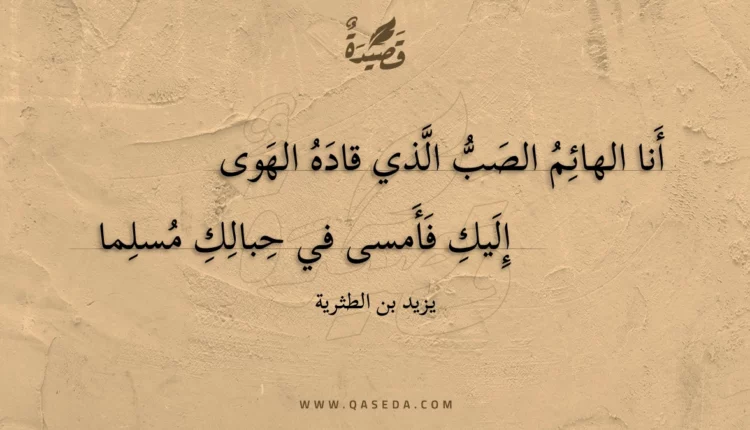 قَصِيدَةٌ
أَنا الهائِمُ الصَبُّ الَّذي قادَهُ الهَوى
إِلَيكِ فَأَمسى في حِبالِكِ مُسلِما
يزيد بن الطثرية
WWW.QASEDA.COM